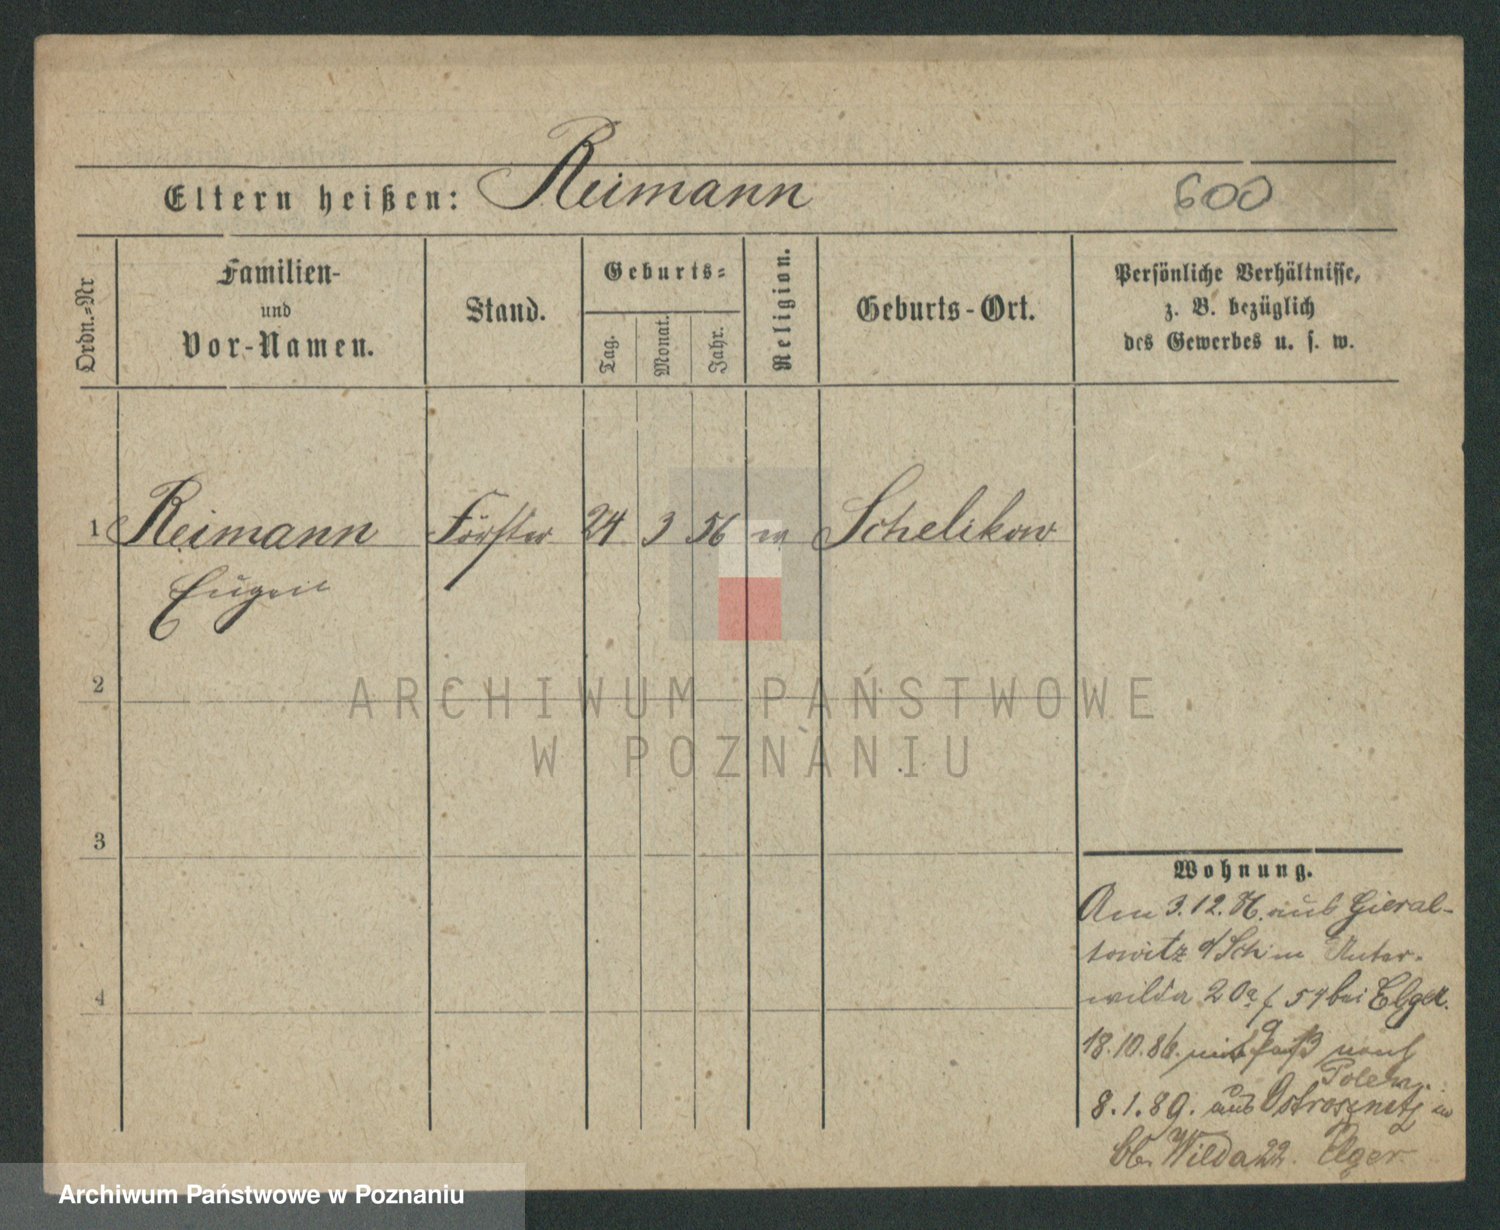 Eltern heißen: Reimann
600
Ordn.-Nr
Familien-
und
Vor-Namen.
Stand.
Geburts-
Tag.
Monat.
Jahr.
Religion.
Geburts-Ort.
Persönliche Verhältnisse,
z. B. bezüglich
des Gewerbes u. s. w.
1 Reimann Förster 24 3 56 Schelikow
Eugen
2
ARCHIWUM PAŃSTWOWE
W POZNANIU
3
4
Wohnung.
Am 3.12. aus Gieral-
towitz Unter-
wilda 20a bei Elger.
18.10.86. mit Paß nach
Polen.
8.1.89. aus
Wilda 22. Elger
Archiwum Państwowe w Poznaniu